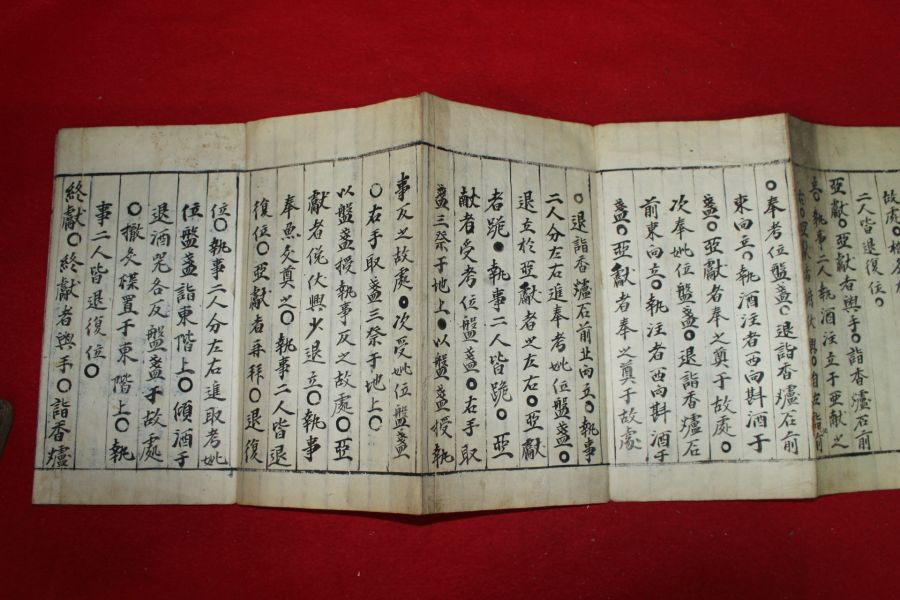 故處○
二人皆退復位○
亞獻○亞獻者盥手○詣香爐石前
執事二人執酒注立于亞獻之
右○
○奉考位盤盞○退詣香爐石前
東向立○執酒注者西向斟酒于
盞○亞獻者奉之奠于故處○
次奉妣位盤盞○退詣香爐石
前東向立○執注者西向斟酒于
盞○亞獻者奉之奠于故處
○退詣香爐石前北向立○執事
二人分左右進奉考妣位盤盞○
退立於亞獻者之左右○亞獻
者跪○執事二人皆跪○亞
獻者受考位盤盞○右手取
盞三祭于地上○以盤盞授執
事反之故處○次受妣位盤盞
○右手取盞三祭于地上○
以盤盞授執事反之故處○亞
獻者俛伏興少退立○執事
奉魚炙奠之○執事二人皆退
復位○亞獻者再拜○退復
位○執事二人分左右進取考妣
位盤盞詣東階上○傾酒于
退酒器各反盤盞于故處
○撤炙楪置于東階上○執
事二人皆退復位○
終獻○終獻者盥手○詣香爐